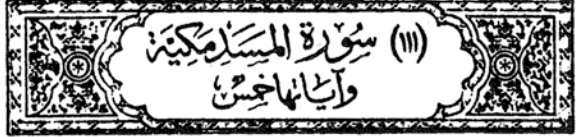 (١١١) سُورَة المَسَدِ مَكيَّة
وَآيَاتُهَا خَمسٌ